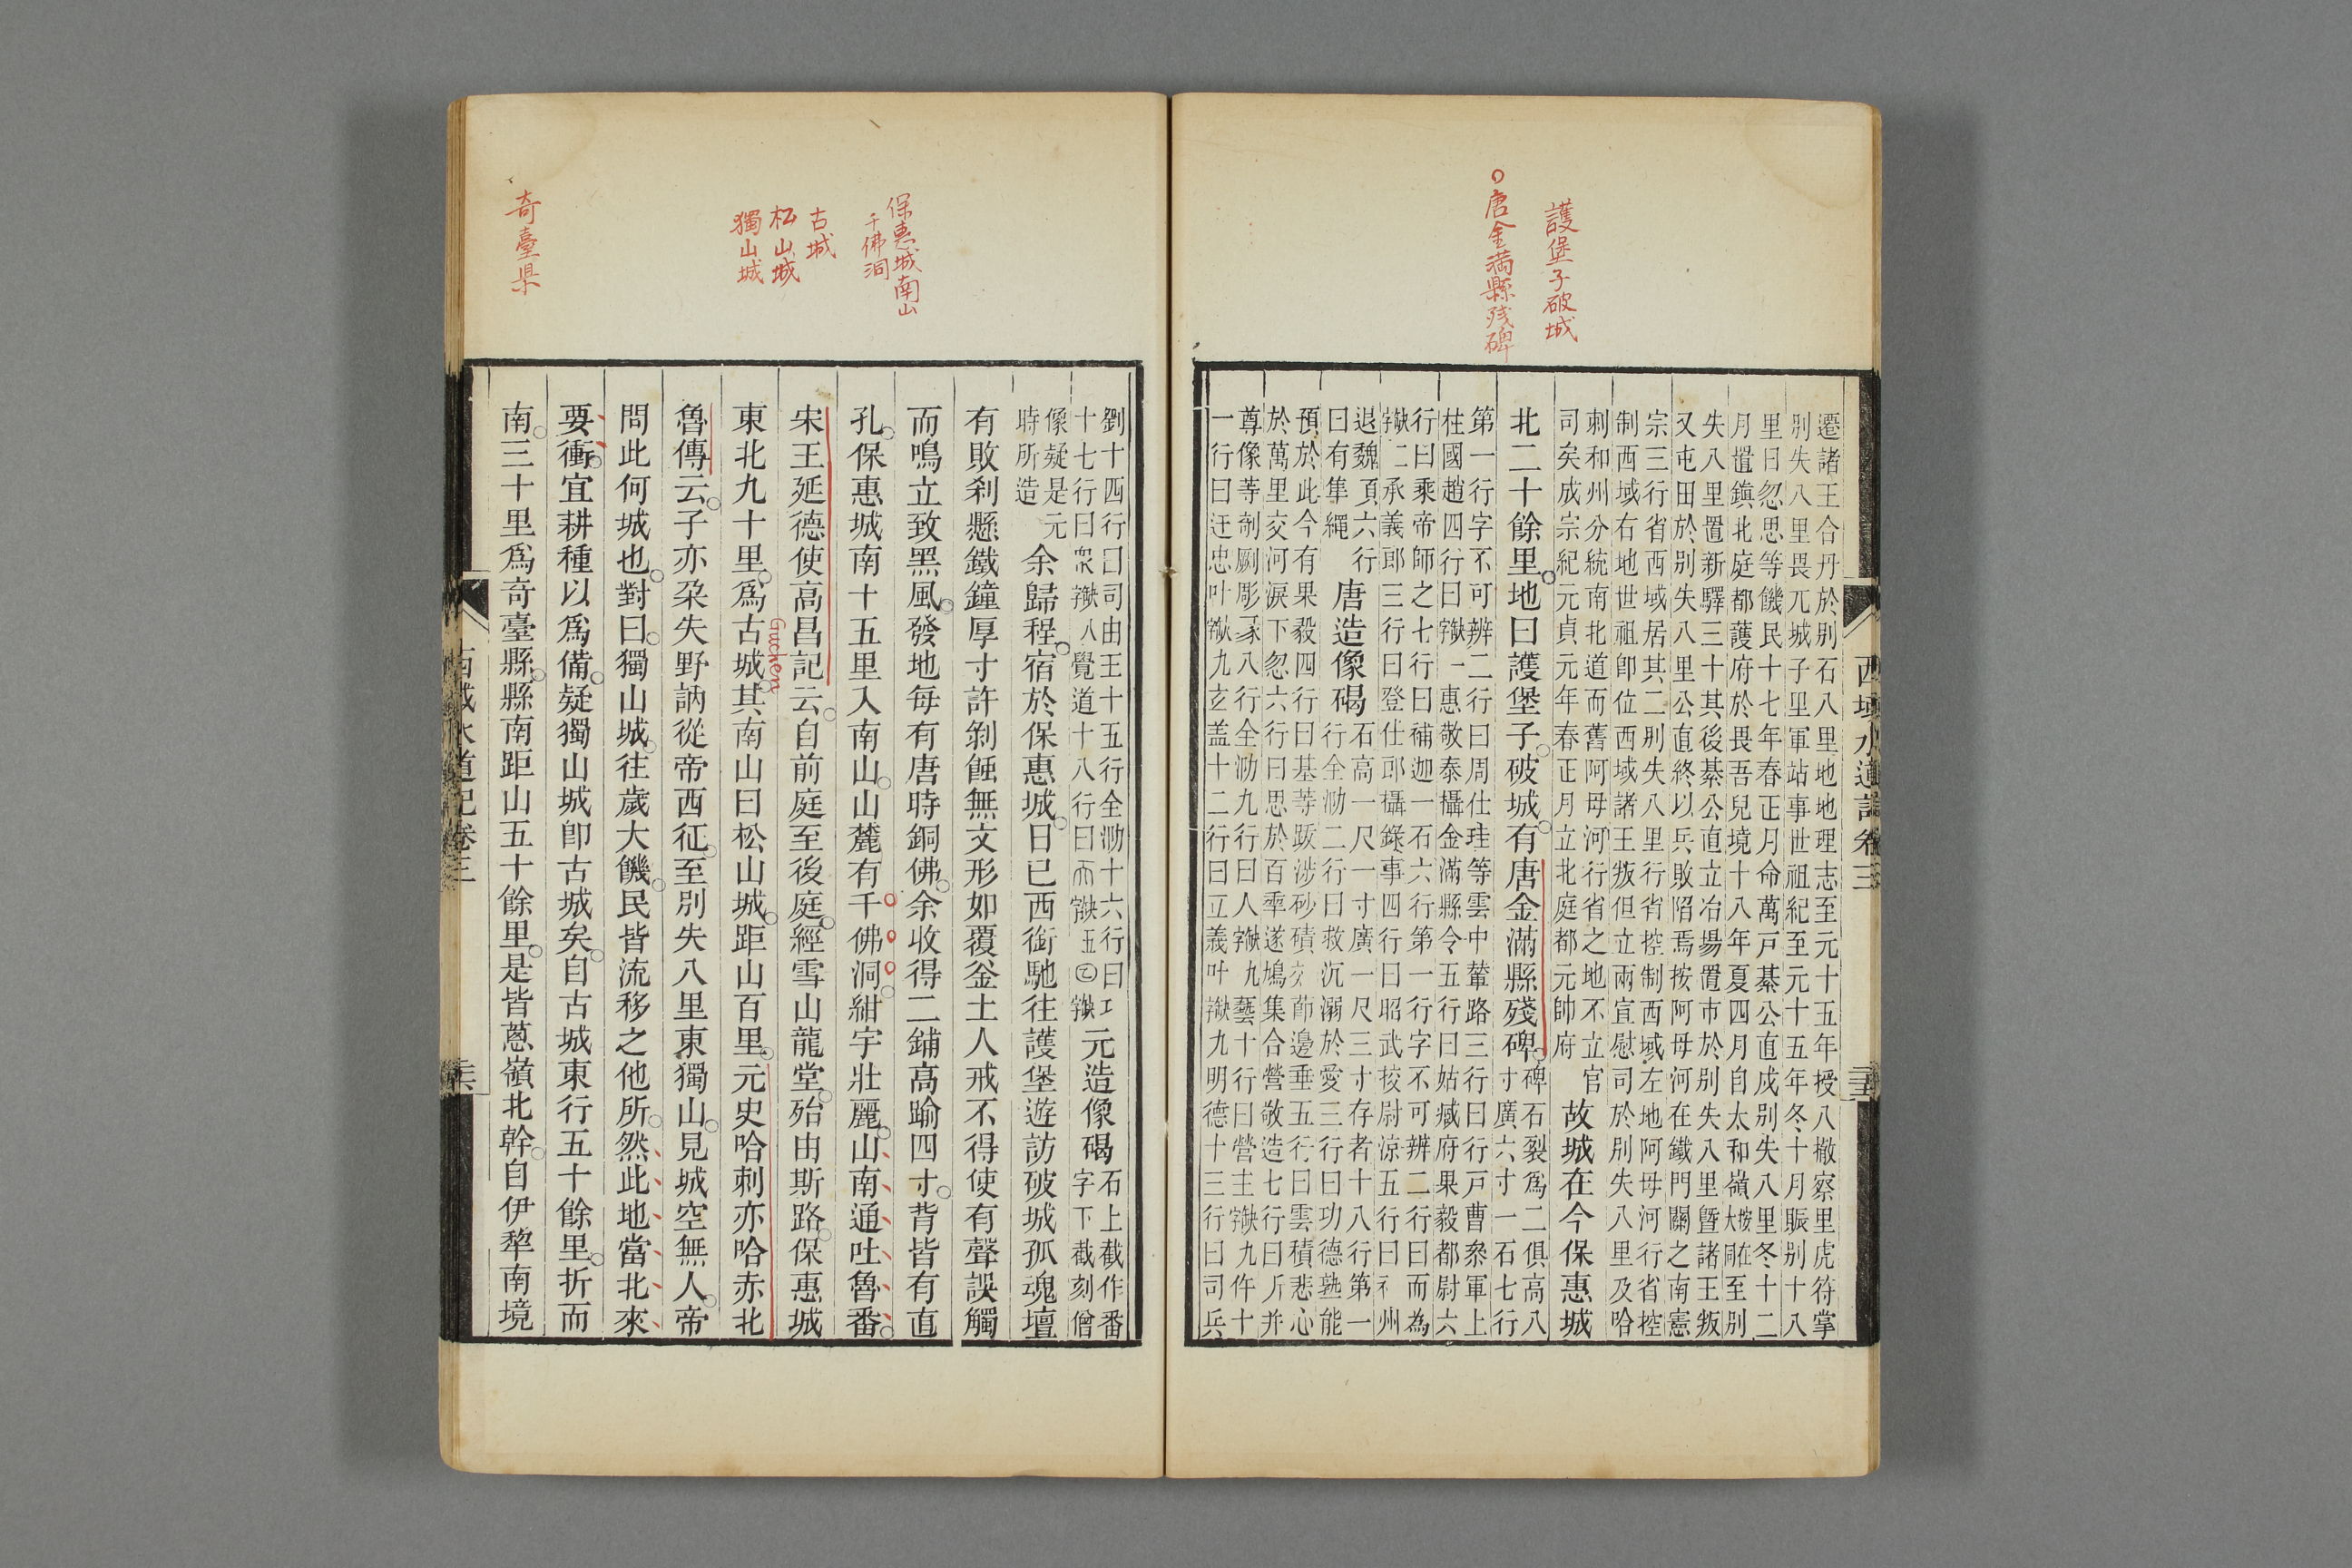 護堡子破城
唐金満縣残碑
遷諸王合丹於別石八里地地理志至元十五年授八撒察里虎符掌
別失八里畏兀城子里軍站事世祖紀至元十五年冬十月賑別十八
里日忽思等饑民十七年春正月命萬戸綦公直戍別失八里冬十二
月置鎮北庭都護府於畏吾兒境十八年夏四月自太和嶺至別
失八里置新驛三十其後綦公直立冶場置市於別失八里暨諸王叛
又屯田於別失八里公直終以兵敗陷焉按阿毋河在鐵門關之南憲
宗三行省西域居其二別失八里行省控制西域左地阿毋河行省控
制西域右地世祖卽位西域諸王叛但立兩宣慰司於別失八里及哈
刺和州分統南北道而舊阿毋河行省之地不立官
司矣成宗紀元貞元年春正月立北庭都元帥府
故城在今保惠城
北二十餘里地曰護堡子破城有唐金滿縣殘碑
碑石裂爲二俱高八
寸廣六寸一石七行
第一行字不可辨二行曰周仕珪等雲中輦路三行曰行戸曹叅軍上
柱國趙四行曰缺一字惠敬泰攝金滿縣令五行曰姑臧府果毅都尉六
行曰乘帝師之七行曰補迦一石六行第一行字不可辨二行曰而為
缺二字承義郎三行曰登仕郎攝錄事四行曰昭武挍尉涼五行曰州
退魏頂六行
曰有隼繩
唐造像碣
石高一尺一寸廣一尺三寸存者十八行第一
行全泐二行曰救沉溺於愛三行曰功德孰能
預於此今有果毅四行曰基等跋涉砂磧邊垂五行曰雲積悲心
於萬里交河淚下忽六行曰思於百率遂鳩集合營敬造七行曰斤并
尊像等剞劂彫彖八行全泐九行曰人缺九字藝十行曰營主缺九字仵十
一行曰迋忠叶缺九字玄盖十二行曰立義叶缺九字明德十三行曰司兵
西域水道記卷三
三五
保惠城南山
千佛洞
古城
松山城
獨山城
奇臺県
劉十四行曰司由王十五行全泐十六行曰巧
十七行曰衆缺八字覺道十八行曰而缺五字
元造像碣
石上截作番
字下截刻僧
像疑是元
時所造
余歸程宿於保惠城日已西銜馳往護堡遊訪破城孤魂壇
有敗刹懸鐵鐘厚寸許剝蝕無文形如覆釜土人戒不得使有聲誤觸
而鳴立致黑風發地每有唐時銅佛余收得二鋪高踰四寸背皆有直
孔保惠城南十五里入南山山麓有千佛洞紺宇壯麗山南通吐魯番
宋王延德使高昌記云自前庭至後庭經雪山龍堂殆由斯路保惠城
東北九十里爲古城其南山曰松山城距山百里元史哈刺亦哈赤北
Guchen
魯傳云子亦朶失野訥從帝西征至別失八里東獨山見城空無人帝
問此何城也對曰獨山城往歲大饑民皆流移之他所然此地當北來
要衝宜耕種以爲備疑獨山城卽古城矣自古城東行五十餘里折而
南三十里爲奇臺縣縣南距山五十餘里是皆蔥嶺北幹自伊犂南境
西域水道記卷三